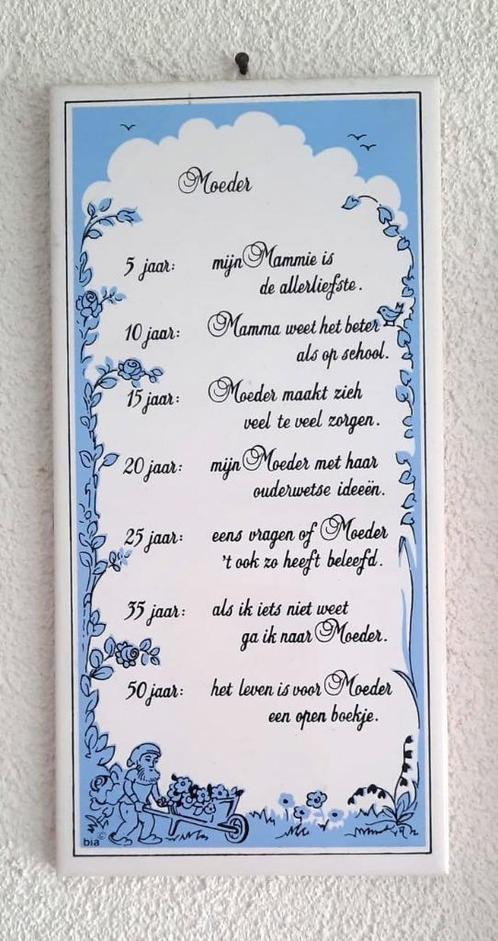 Moeder
5 jaar: mijn Mammie is
de allerliefste.
10 jaar: Mamma weet het beter
als op school.
15 jaar: Moeder maakt zich
veel te veel zorgen.
20 jaar: mijn Moeder met haar
ouderwetse ideeën.
25 jaar: eens vragen of Moeder
't ook zo heeft beleefd.
35 jaar: als ik iets niet weet
ga ik naar Moeder.
50 jaar: het leven is voor Moeder
een open boekje.
bia ©